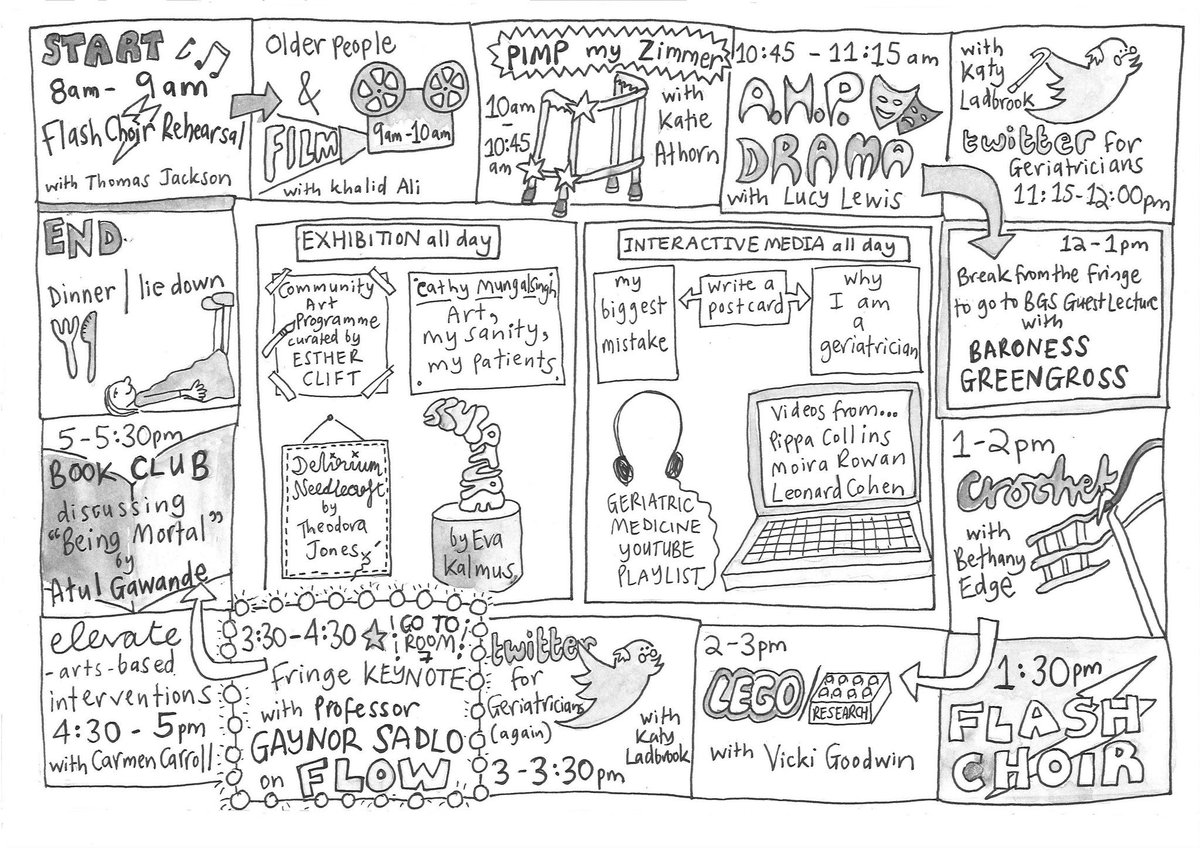 START
8am - 9am
Flash Choir Rehearsal
with Thomas Jackson
Older People
&
FILM
9am-10am
with Khalid Ali
PIMP my Zimmer
10am
-
10:45
am
with
Katie
Athorn
10:45 - 11:15 am
A.H.P.
DRAMA
with Lucy Lewis
with
Katy
Ladbrook
twitter for
Geriatricians
11:15-12:00pm
12-1pm
Break from the Fringe
to go to BGS Guest Lecture
with
BARONESS
GREENGROSS
1-2pm
Crochet
with
Bethany
Edge
1:30pm
FLASH
CHOIR
2-3pm
LEGO/
RESEARCH
with Vicki Goodwin
twitter
for
Geriatricians
(again)
with
Katy
Ladbrook
3-3:30pm
3:30-4:30
! GO TO !
! ROOM !
7
Fringe KEYNOTE
with Professor
GAYNOR SADLO
on FLOW
elevate
-arts-based
interventions
4:30 - 5pm
with Carmen Carroll
5-5:30pm
BOOK CLUB
discussing
"Being Mortal"
by
Atul Gawande
END
Dinner / lie down
EXHIBITION all day
Community
Art
Programme
curated by
ESTHER
CLIFT
Cathy Mungalsingh
Art,
my sanity,
my patients
Delirium
Needlecraft
by
Theodora
Jones
by Eva
Kalmus
INTERACTIVE MEDIA all day
my
biggest
mistake
write a
postcard
why
I am
a
geriatrician
GERIATRIC
MEDICINE
YOUTUBE
PLAYLIST
Videos from...
Pippa Collins
Moira Rowan
Leonard Cohen